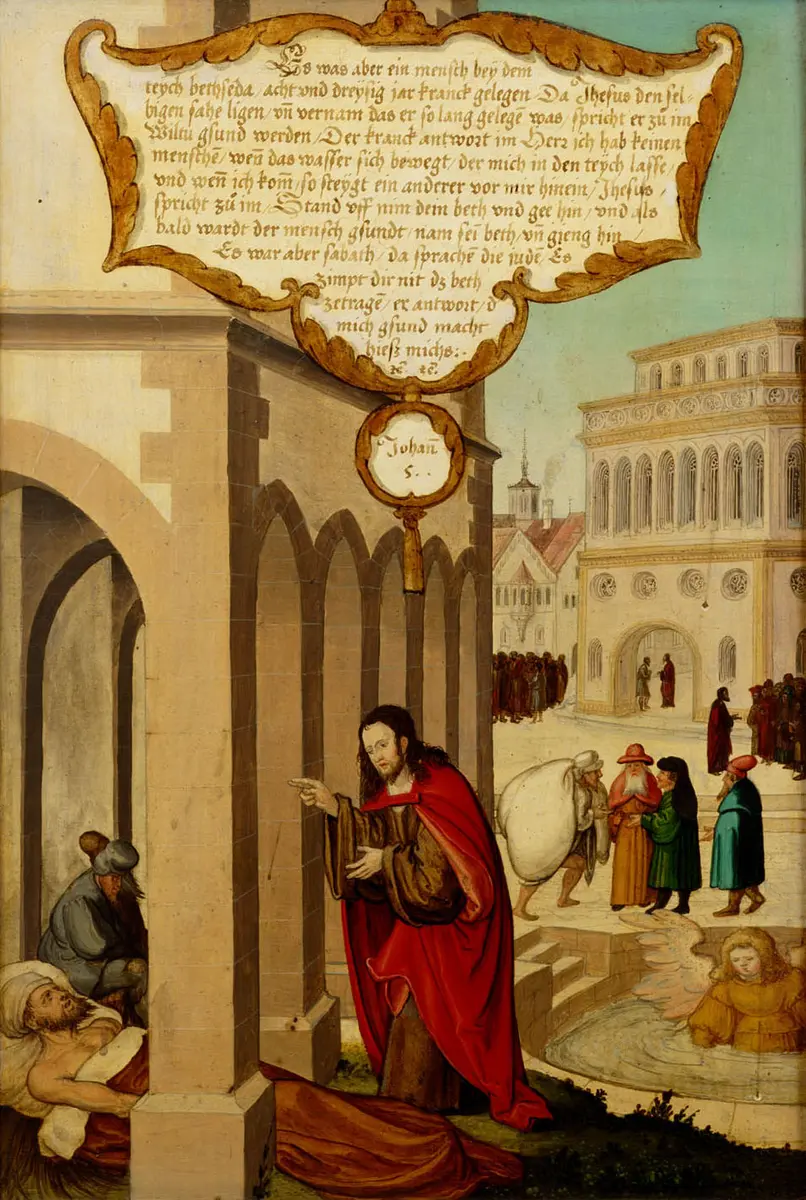 Es was aber ein mensch bey dem
teych bethseda / acht vnd dreysig jar kranck gelegen Da Jhesus den sel-
bigen sahe ligen / vñ vernam das er so lang gelegẽ was / spricht er zů im
Wiltu gsund werden / Der kranck antwort im Herr ich hab keinen
menschẽ / weñ das wasser sich bewegt / der mich in den teych lasse /
vnd weñ ich kom̃ / so steygt ein anderer vor mir hinein / Jhesus
spricht zů im / Stand vff nim dein beth vnd gee hin / vnd als
bald wardt der mensch gsundt / nam sei͂ beth / vñ gieng hin /
Es war aber sabath / da sprachẽ die judẽ / Es
zimpt dir nit dz beth
zetragẽ / er antwort / d
mich gsund macht
hiesz michs :
ꝛc. ꝛc.
Johañ
5 . .